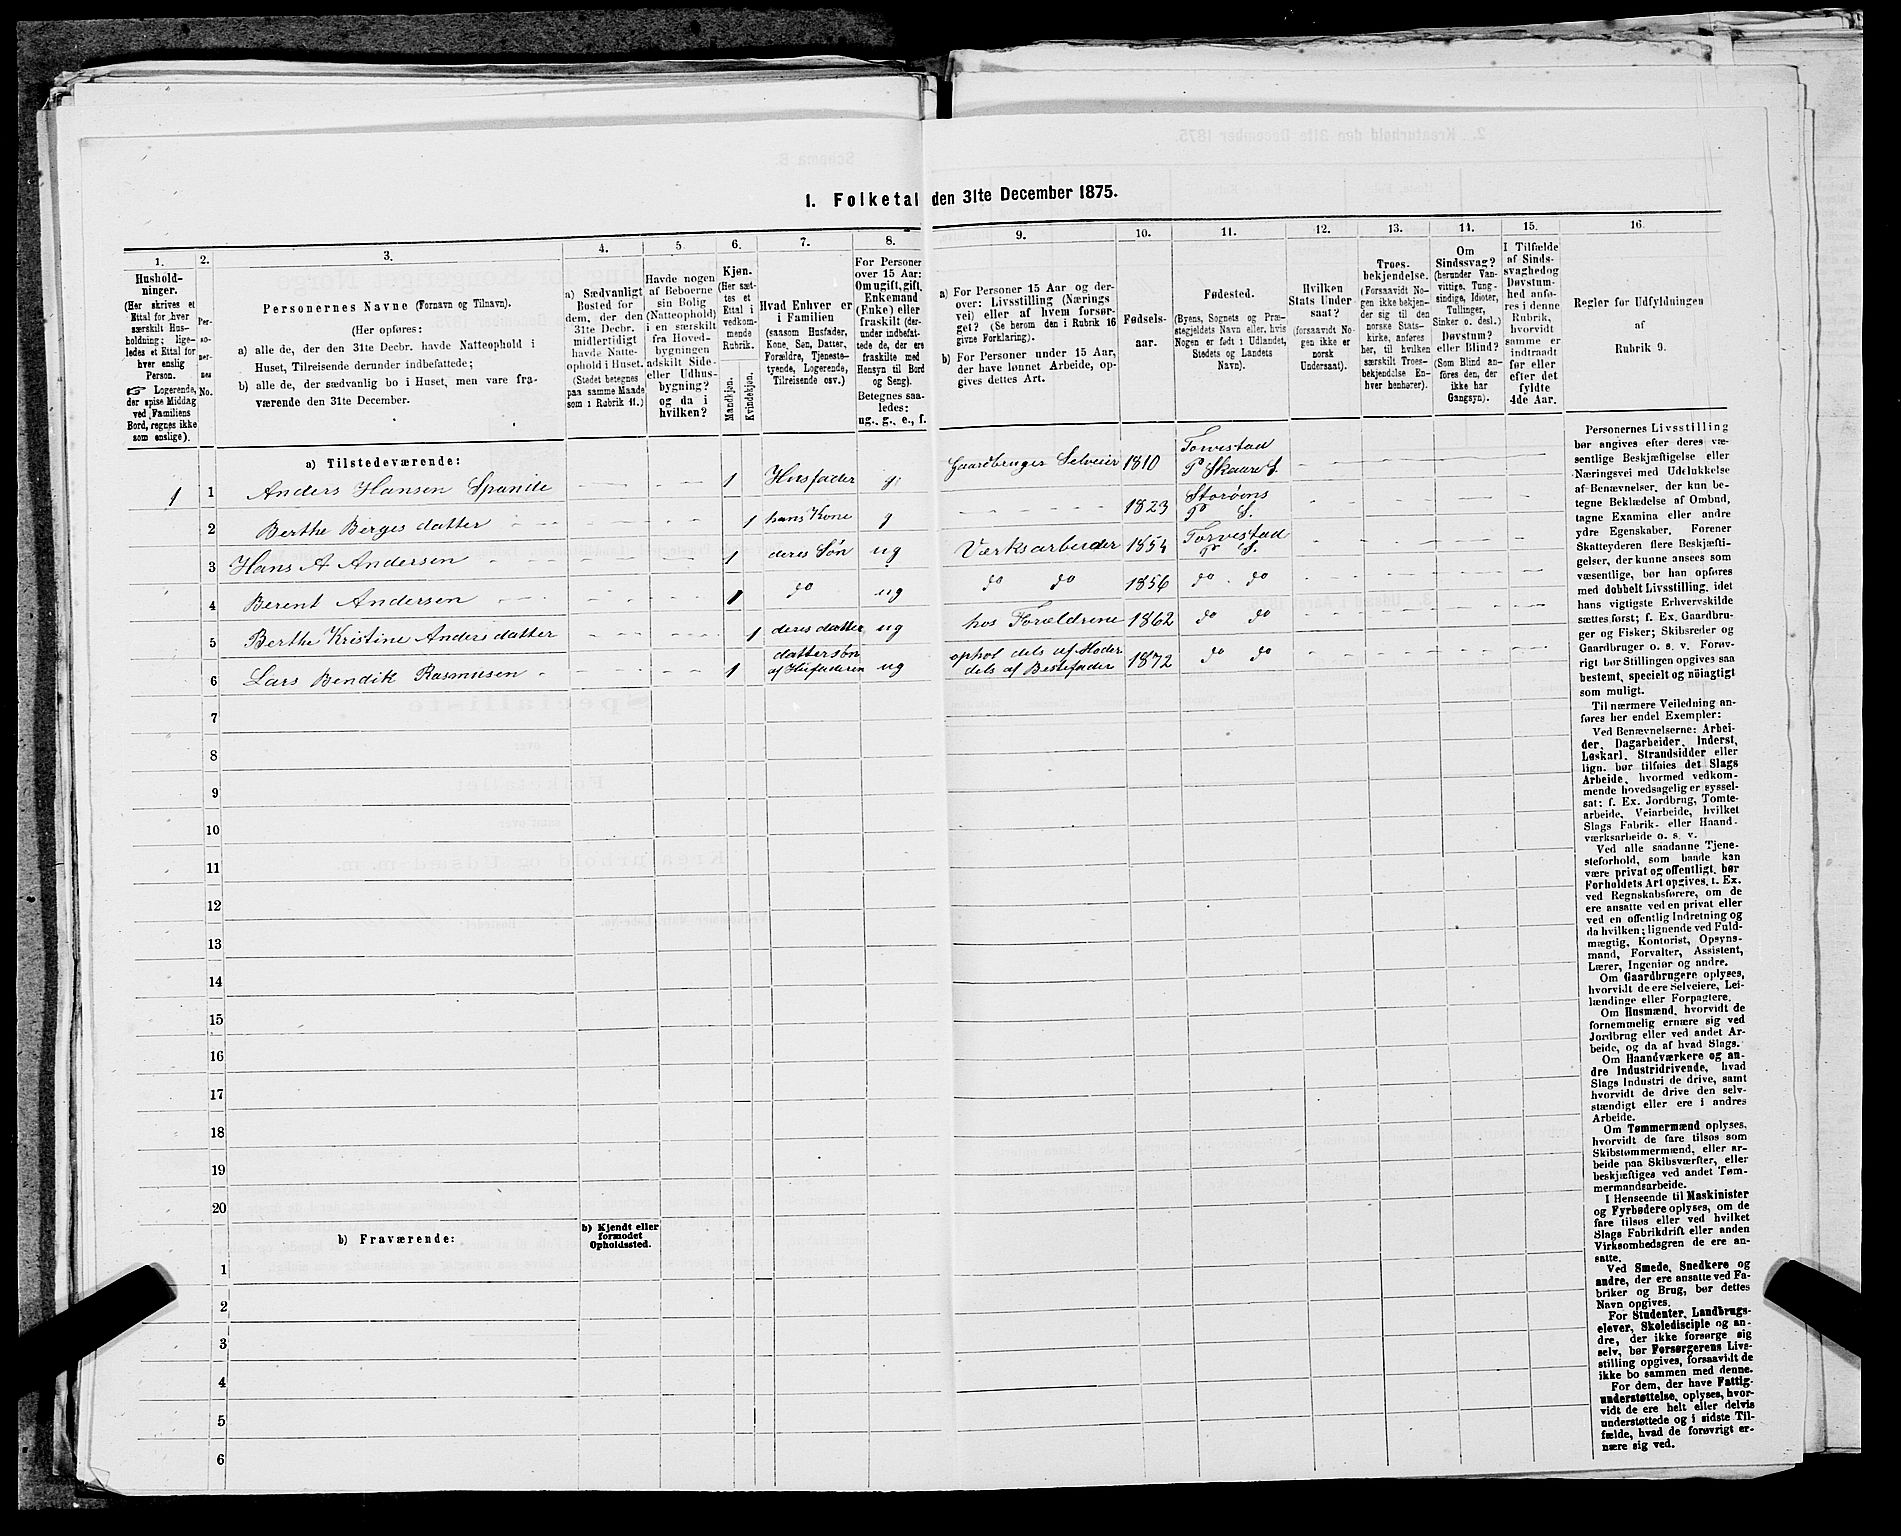 1. Folketal den 31te December 1875.
1.
Hushold-
ninger.
(Her skrives et
Ettal for hver
særskilt Hus-
holdning; lige-
ledes et Ettal for
hver enslig
Person.
☞ Logerende,
der spise Middag
ved Familiens
Bord, regnes ikke
som enslige).
2.
Per-
so-
ner-
nes
No.
3.
Personernes Navne (Fornavn og Tilnavn).
(Her opføres:
a) alle de, der den 31te Decbr. havde Natteophold i
Huset, Tilreisende derunder indbefattede;
b) alle de, der sædvanlig bo i Huset, men vare fra-
værende den 31te December.
4.
a) Sædvanligt
Bosted for
dem, der den
31te Decbr.
midlertidigt
havde Natte-
ophold i Huset.
(Stedet betegnes
paa samme Maade
som i Rubrik 11.)
5
Havde nogen
af Beboerne
sin Bolig
(Natteophold)
i en særskilt
fra Hoved-
bygningen
adskilt Side-
eller Udhus-
bygning?
og da i
hvilken?
6.
Kjøn.
(Her sæt-
tes et
Ettal i
vedkom-
mende
Rubrik.
Mandkjøn.
Kvindekjøn.
7.
Hvad Enhver er
i Familien
(saasom Husfader,
Kone, Søn, Datter,
Forældre, Tjeneste-
tyende, Logerende,
Tilreisende osv.)
8.
For Personer
over 15 Aar:
Om ugift, gift,
Enkemand
(Enke) eller
fraskilt (der-
under indbefat-
tede de, der ere
fraskilte med
Hensyn til Bord
og Seng).
Betegnes saa-
ledes:
ug., g., e., f.
9.
a) For Personer 15 Aar og der-
over: Livsstilling (Nærings
vei) eller af hvem forsør-
get? (Se herom den i Rubrik 16
givne Forklaring).
b) For Personer under 15 Aar,
der have lønnet Arbeide, op-
gives dettes Art.
10.
Fødsels-
aar.
11.
Fødested.
(Byens, Sognets og Præ-
stegjeldets Navn eller, hvis
Nogen er født i Udlandet,
Stedets og Landets
Navn).
12.
Hvilken
Stats Under-
saat?
(forsaavidt No-
gen ikke er
norsk
Undersaat).
13.
Troes-
bekjendelse.
(Forsaavidt No-
gen ikke bekjen-
der sig til den
norske Stats-
kirke, anføres
her, til hvilken
særskilt Troes-
bekjendelse En-
hver henhører).
14.
Om
Sindssvag?
(herunder Van-
vittige, Tung-
sindige, Idioter,
Tullinger,
Sinker o. desl.)
Døvstum?
eller Blind?
(Som Blind an-
føres den, der
ikke har
Gangsyn).
15.
I Tilfælde
af Sinds-
svaghed og
Døvstum-
hed anfø-
res i denne
Rubrik,
hvorvidt
samme er
indtraadt
før eller
efter det
fyldte
4de Aar.
16
Regler for Udfyldningen
af
Rubrik 9.
a) Tilstedeværende:
1 1 Anders Hansen Spande 1 Husfader g Gaardbruger Selveier 1810 Torvestad P Skaare S.
2 Berthe Bergesdatter 1 hans Kone g 1823 Storøens P S.
3 Hans A Andersen 1 deres Søn ug Værksarbeider 1854 Torvestad P S.
4 Berent Andersen 1 do ug do do 1856 do do
5 Berthe Kristine Andersdatter 1 deres datter ug hos Forældrene 1862 do do
6 Lars Bendik Rasmusen 1 dattersøn af Husfaderen ug ophol dels af Moder dels af Bestefader 1872 do do
7
8
9
10
11
12
13
14
15
16
17
18
19
20
b) Fraværende:
b) Kjendt eller
formodet
Opholdssted.
1
2
3
4
5
6
Personernes Livsstilling
bør angives efter deres væ-
sentlige Beskjæftigelse eller
Næringsvei med Udelukkelse
af Benævnelser, der kun be-
tegne Beklædelse af Ombud,
tagne Examina eller andre
ydre Egenskaber. Forener
Skatteyderen flere Beskjæfti-
gelser, der kunne ansees som
væsentlige, bør han opføres
med dobbelt Livsstilling, idet
hans vigtigste Erhvervskilde
sættes først; f. Ex. Gaardbru-
ger og Fisker; Skibsreder og
Gaardbruger o. s. v. Forøv-
rigt bør Stillingen opgives saa
bestemt, specielt og nöiagtigt
som muligt.
Til nærmere Veiledning an-
føres her endel Exempler:
Ved Benævnelserne: Arbei-
der, Dagarbeider, Inderst,
Løskarl, Strandsidder eller
lign. bør tilføies det Slags
Arbeide, hvormed vedkom-
mende hovedsagelig er syssel-
sat; f. Ex. Jordbrug, Tomte-
arbeide, Veiarbeide, hvilket
Slags Fabrik- eller Haand-
værksarbeide o. s. v.
Ved alle saadanne Tjene-
steforhold, som baade kan
være privat og offentligt, bør
Forholdets Art opgives, t. Ex.
ved Regnskabsførere, om de
ere ansatte ved en privat eller
ved en offentlig Indretning og
da hvilken; lignende ved Fuld-
mægtig, Kontorist, Opsyns-
mand, Forvalter, Assistent,
Lærer, Ingeniør og andre.
Om Gaardbrugere oplyses,
hvorvidt de ere Selveiere, Lei-
lændinge eller Forpagtere.
Om Husmænd, hvorvidt de
fornemmelig ernære sig ved
Jordbrug eller ved andet Ar-
beide, og da af hvad Slags.
Om Haandværkere og an-
dre Industridrivende, hvad
Slags Industri de drive, samt
hvorvidt de drive den selv-
stændigt eller ere i andres
Arbeide.
Om Tømmermænd oplyses,
hvorvidt de fare tilsøs som
Skibstømmermænd, eller ar-
beide paa Skibsværfter, eller
beskjæftiges ved andet Tøm-
mermandsarbeide.
I Henseende til Maskinister
og Fyrbødere oplyses, om de
fare tilsøs eller ved hvilket
Slags Fabrikdrift eller anden
Virksomhedsgren de ere an-
satte.
Ved Smede, Snedkere og
andre, der ere ansatte ved Fa-
briker og Brug, bør dettes
Navn opgives.
For Studenter, Landbrugs-
elever, Skoledisciple og an-
dre, der ikke forsørge sig
selv, bør Forsørgerens Livs-
stilling opgives, forsaavidt de
ikke bo sammen med denne.
For dem, der have Fattig-
understøttelse, oplyses, hvor-
vidt de ere helt eller delvis
understøttede og i sidste Til-
fælde, hvad de forøvrigt er-
nære sig ved.